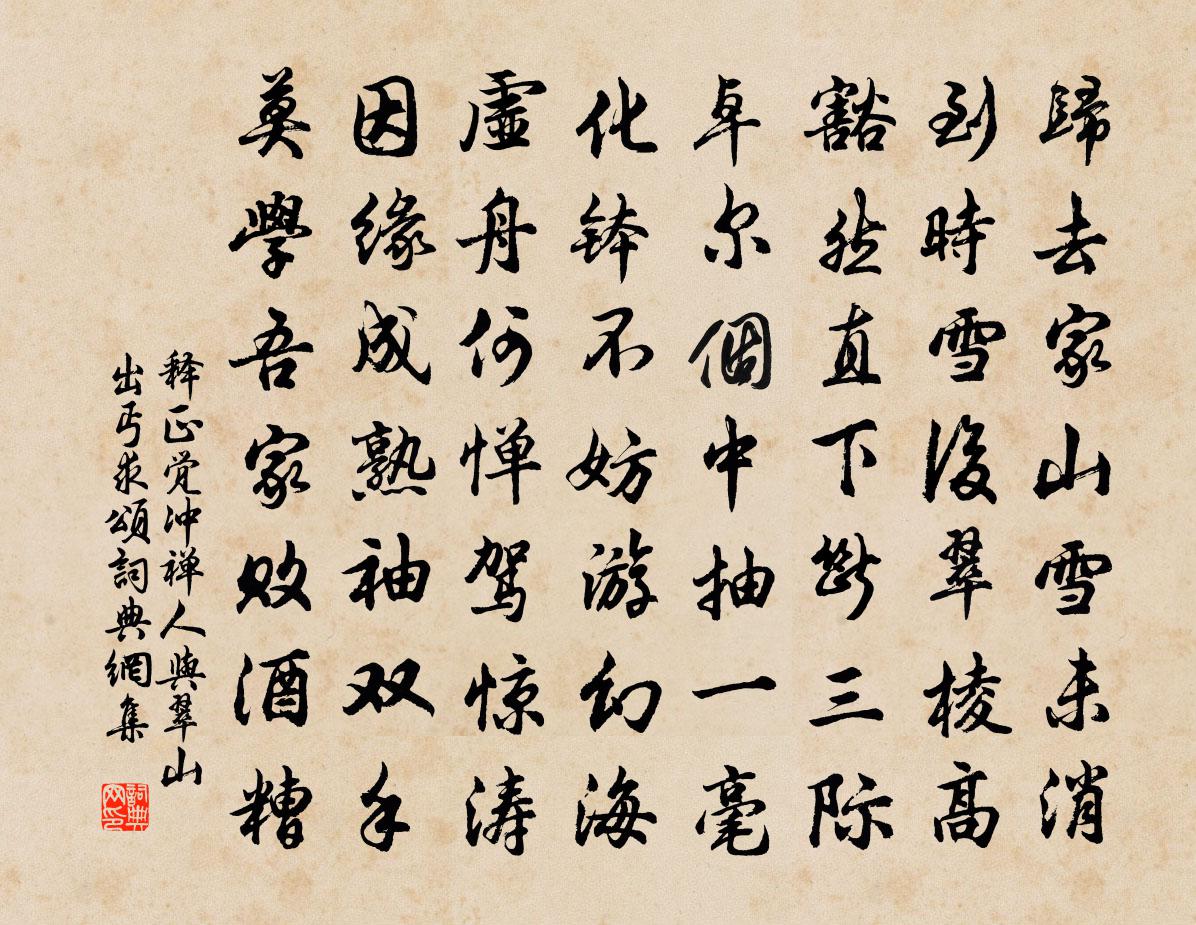 歸去家山雪未消
到時雪後翠棱高
豁然直下断三际
卓尔個中抽一毫
化钵不妨游幻海
虚舟何惮驾惊涛
因缘成熟袖双手
莫學吾家败酒糟
释正觉冲禅人與翠山
出丐求頌詞典網集
詞典
网印